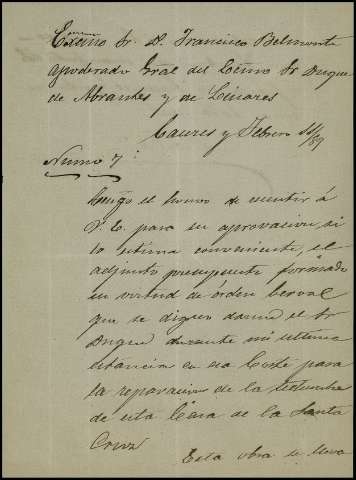 Excmo Sr. D. Francisco Belmonte
apoderado Gral del Excmo Sr Duque
de Abrantes y de Linares
Caceres y Febrero 11/89
Numo 7
Tengo el honor de remitir á
V. E. para su aprovacion, si
lo estima conveniente, el
adjunto presupuesto formado
en virtud de órden berval
que se digno darme el Sr
Duque durante mi ultima
estancia en esa Corte para
la reparacion de la techumbre
de esta Casa de la Santa
Cruz
Esta obra se lleva